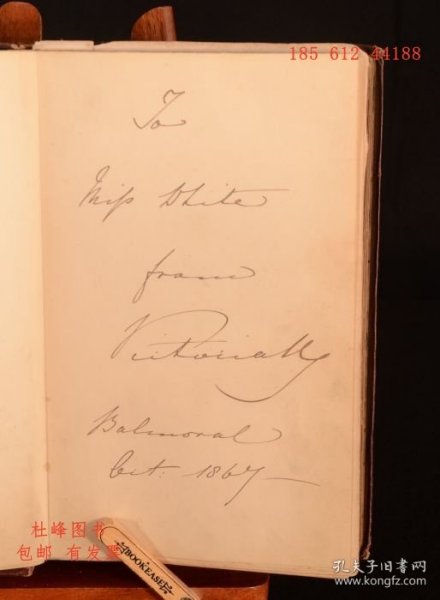 185 612 44188
To
Miss White
from
Victoria R
Balmoral
Oct: 1867
杜峰图书
包邮 有发票
BOOKEASE
孔夫子旧书网
www.kongfz.com